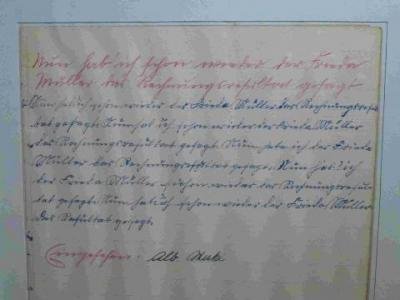 Nun hab' ich schon wieder der Frieda
Müller das Rechnungsresultat gesagt
Nun hab ich schon wieder der Frieda Müller das Rechnungsresul-
tat gesagt. Nun hab ich schon wieder der Frieda Müller
das Rechnungsresultat gesagt. Nun hab ich der Frieda
Müller das Rechnungsresultat gesagt. Nun hab ich
der Frieda Müller schon wieder das Rechnungsresul-
tat gesagt. Nun hab ich schon wieder der Frieda Müller
das Resultat gesagt.
Eingesehen: Alb